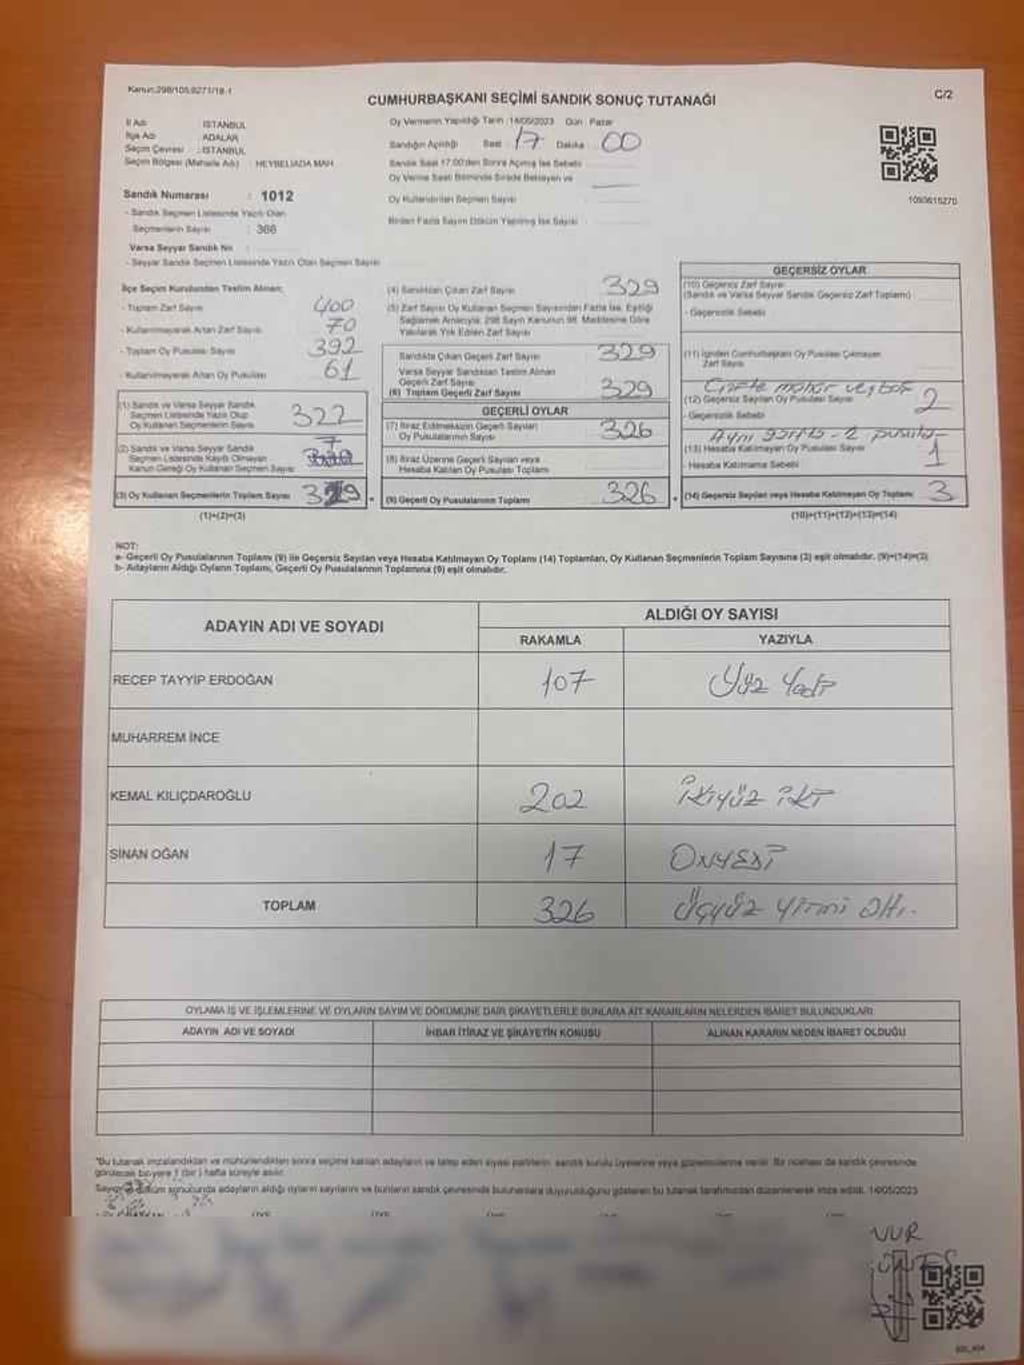 Kanun:298/105,6271/18-1
CUMHURBAŞKANI SEÇİMİ SANDIK SONUÇ TUTANAĞI
C/2
İl Adı : İSTANBUL
İlçe Adı : ADALAR
Seçim Çevresi : İSTANBUL
Seçim Bölgesi (Mahalle Adı) : HEYBELİADA MAH.
Oy Vermenin Yapıldığı Tarih :14/05/2023 Gün : Pazar
Sandığın Açıldığı Saat 17 Dakika 00
Sandık Saat 17:00'den Sonra Açılmış İse Sebebi
Oy Verme Saati Bitiminde Sırada Bekleyen ve
Oy Kullandırılan Seçmen Sayısı
Birden Fazla Sayım Döküm Yapılmış İse Sayısı
1093615270
Sandık Numarası : 1012
- Sandık Seçmen Listesinde Yazılı Olan
Seçmenlerin Sayısı : 366
Varsa Seyyar Sandık No :
- Seyyar Sandık Seçmen Listesinde Yazılı Olan Seçmen Sayısı
İlçe Seçim Kurulundan Teslim Alınan;
- Toplam Zarf Sayısı 400
- Kullanılmayarak Artan Zarf Sayısı 70
- Toplam Oy Pusulası Sayısı 392
- Kullanılmayarak Artan Oy Pusulası 61
(1) Sandık ve Varsa Seyyar Sandık
Seçmen Listesinde Yazılı Olup
Oy Kullanan Seçmenlerin Sayısı 322
(2) Sandık ve Varsa Seyyar Sandık
Seçmen Listesinde Kayıtlı Olmayan
Kanun Gereği Oy Kullanan Seçmen Sayısı 7
(3) Oy Kullanan Seçmenlerin Toplam Sayısı 329
(1)+(2)=(3)
(4) Sandıktan Çıkan Zarf Sayısı 329
(5) Zarf Sayısı Oy Kullanan Seçmen Sayısından Fazla İse, Eşitliği
Sağlamak Amacıyla; 298 Sayılı Kanunun 98. Maddesine Göre
Yakılarak Yok Edilen Zarf Sayısı
Sandıkta Çıkan Geçerli Zarf Sayısı 329
Varsa Seyyar Sandıktan Teslim Alınan
Geçerli Zarf Sayısı
(6) Toplam Geçerli Zarf Sayısı 329
GEÇERLİ OYLAR
(7) İtiraz Edilmeksizin Geçerli Sayılan
Oy Pusulalarının Sayısı 326
(8) İtiraz Üzerine Geçerli Sayılan veya
Hesaba Katılan Oy Pusulası Toplamı
(9) Geçerli Oy Pusulalarının Toplamı 326
GEÇERSİZ OYLAR
(10) Geçersiz Zarf Sayısı
(Sandık ve Varsa Seyyar Sandık Geçersiz Zarf Toplamı)
- Geçersizlik Sebebi
(11) İçinden Cumhurbaşkanı Oy Pusulası Çıkmayan
Zarf Sayısı
Çifte mühür
(12) Geçersiz Sayılan Oy Pusulası Sayısı 2
- Geçersizlik Sebebi
Aynı 2 pusula
(13) Hesaba Katılmayan Oy Pusulası Sayısı 1
- Hesaba Katılmama Sebebi
(14) Geçersiz Sayılan veya Hesaba Katılmayan Oy Toplamı 3
(10)+(11)+(12)+(13)=(14)
NOT:
a- Geçerli Oy Pusulalarının Toplamı (9) ile Geçersiz Sayılan veya Hesaba Katılmayan Oy Toplamı (14) Toplamları, Oy Kullanan Seçmenlerin Toplam Sayısına (3) eşit olmalıdır. (9)+(14)=(3)
b- Adayların Aldığı Oyların Toplamı, Geçerli Oy Pusulalarının Toplamına (9) eşit olmalıdır.
ADAYIN ADI VE SOYADI
ALDIĞI OY SAYISI
RAKAMLA YAZIYLA
RECEP TAYYİP ERDOĞAN 107 Yüz Yedi
MUHARREM İNCE
KEMAL KILIÇDAROĞLU 202 İkiyüz iki
SİNAN OĞAN 17 ONYEDİ
TOPLAM 326 Üçyüz yirmi Altı.
OYLAMA İŞ VE İŞLEMLERİNE VE OYLARIN SAYIM VE DÖKÜMÜNE DAİR ŞİKAYETLERLE BUNLARA AİT KARARLARIN NELERDEN İBARET BULUNDUKLARI
ADAYIN ADI VE SOYADI İHBAR İTİRAZ VE ŞİKAYETİN KONUSU ALINAN KARARIN NEDEN İBARET OLDUĞU
*Bu tutanak imzalandıktan ve mühürlendikten sonra seçime katılan adayların ve talep eden siyasi partilerin sandık kurulu üyelerine veya gözlemcilerine verilir. Bir nüshası da sandık çevresinde
görülecek bir yere 1 (bir) hafta süreyle asılır.
Sayım döküm sonucunda adayların aldığı oyların sayılarını ve bunların sandık çevresinde bulunanlara duyurulduğunu gösteren bu tutanak tarafımızdan düzenlenerek imza edildi. 14/05/2023
NUR